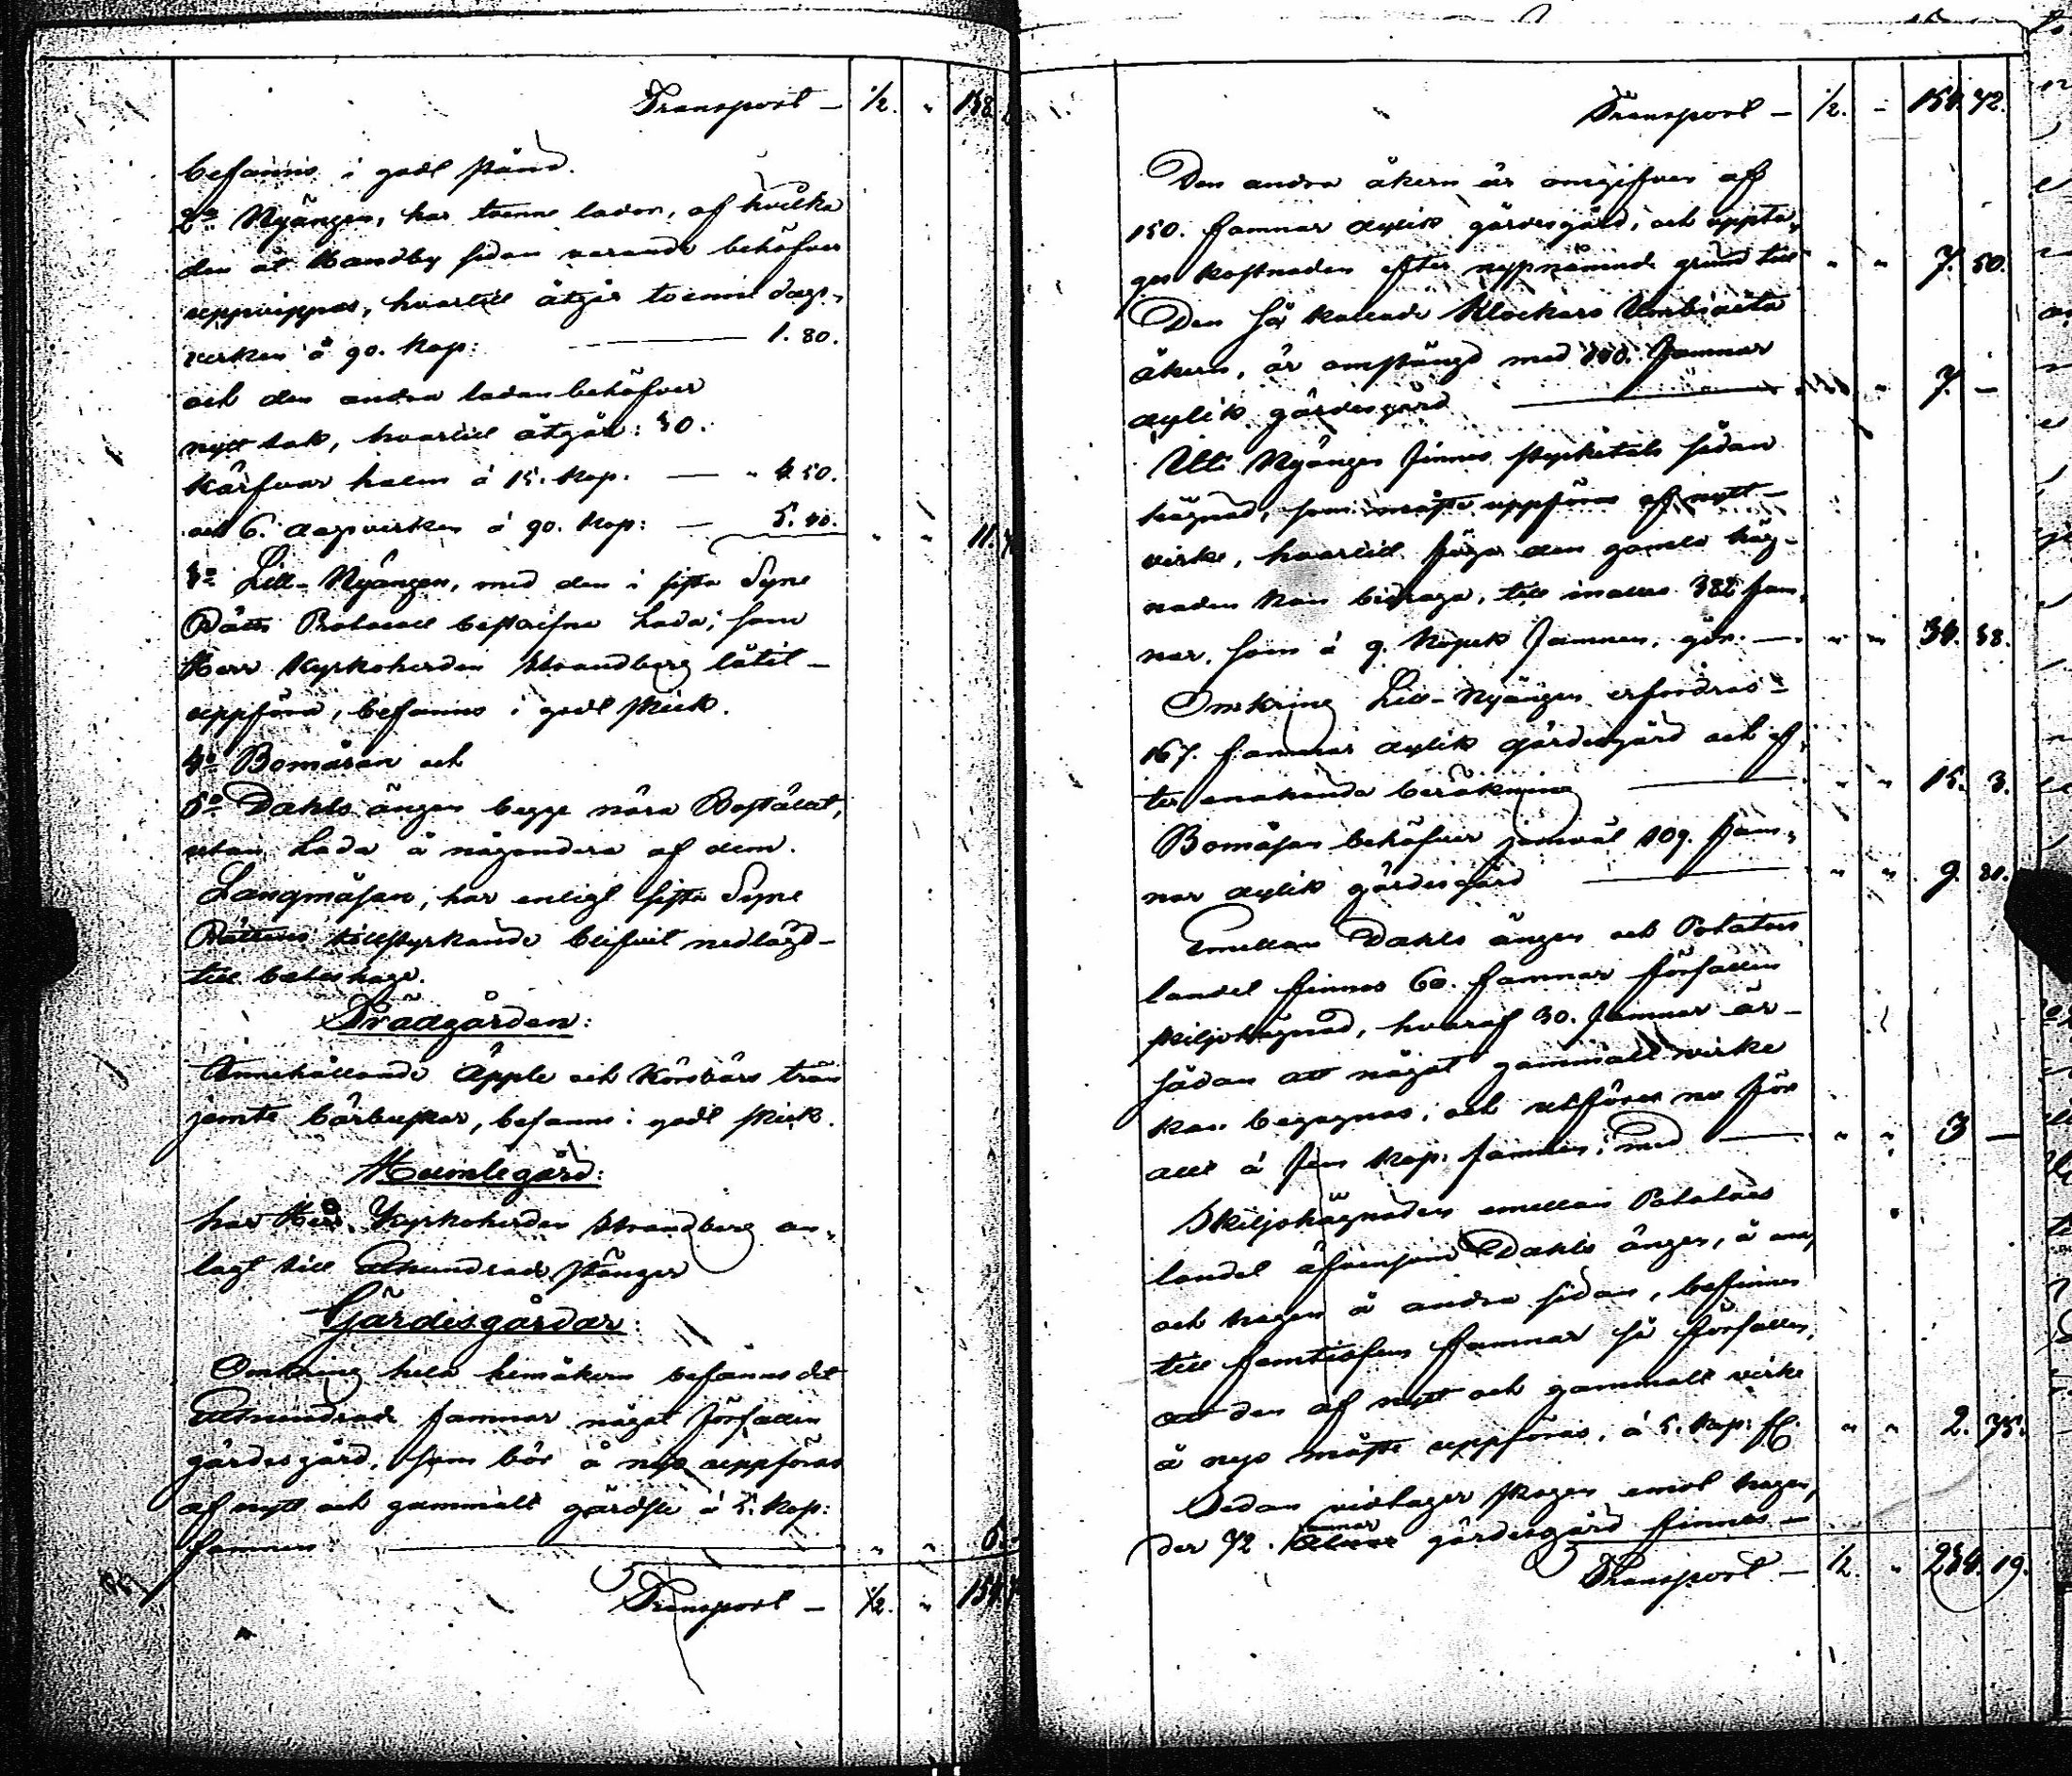 Transport — ½. " 138.
befanns i godt stånd.
2o Nyängen, har tvenne lador, af hvilka
den åt Sandby sidan varande behöfver
uppvippas, hvartill åtgår tvenne dags-
verken å 90. Kop: — 1. 80.
och den andra ladan behöfver
nytt tak, hvartill åtgår: 30.
kärfvar halm á 15. Kop. — " 4. 50.
och 6. dagsverken á 90. Kop: — 5. 40. " " 11.
3o Lill-Nyängen, med den i sista Syne
Rätts Protocoll beskrifne Lada; som
Herr Kyrkoherden Strandberg låtit
uppföra, befanns i godt skick.
4o Bomåsan och
5o Dahls ängen begge nära Bostället,
utan Lada å någondera af dem.
Langmåsan, har enligt sista Syne
Rättens tillstyrkande blifvit nedlagd
till beteshage.
Trädgården:
Innehållande Äpple och Körsbärs trän
jemte bärbuskar, befanns i godt skick.
Humlegård:
har Herr Kyrkoherden Strandberg an-
lagt till Etthundrade stänger
Gärdisgårdar:
Omkring hela hemåkern befanns det
Etthundrade famnar något förfallen
gärdesgård, som bör å nyo uppföras
af nytt och gammalt gärdsle á 5. Kop:
famnen — " " 5.
Transport — ½. " 154.
Transport — ½. " 154. 72.
Den andra åkern är omgifven af
150. famnar dylik gärdesgård, och uppta-
ges kostnaden efter nyssnämnde grund till " " 7. 50.
Den så kallade Klockars
åkern, är omstängd med 140. famnar
dylik gärdesgård — " " 7. —
Uti Nyängen finnes styckетals sådan
hägnad, som måste uppföras af nytt
virke, hvartill föga den gamla häg-
naden kan bidraga, till inalles 382 fam-
nar, som á 9. Kopek famnen, gör — " " 34. 38.
Omkring Lill-Nyängen erfordras
167. famnar dylik gärdesgård och ef-
ter enahanda beräkning — " " 15. 3.
Bomåsan behöfver jemväl 109. fam-
nar dylik gärdesgård — " " 9. 81.
Emellan Dahls ängen och Potatoes
landet finnes 60. famnar förfallen
skiljohägnad, hvaraf 30. famnar är
sådan att något gammalt virke
kan begagnas; och utföres nu för
allt á fem Kop: famnen; med — " " 3 —
Skiljohägnaden emellan Potatoes
landet äfvensom Dahls ängen, å ena,
och hagen å andra sidan, befinnes
till femtiofem famnar så förfallen,
att den af nytt och gammalt virke
å nyo måste uppföras, á 5. Kop: " " 2. 75.
Sedan vidtager skogen emot hagen,
der 72. famnar gärdesgård finnes —
Transport — ½. " 234. 19.